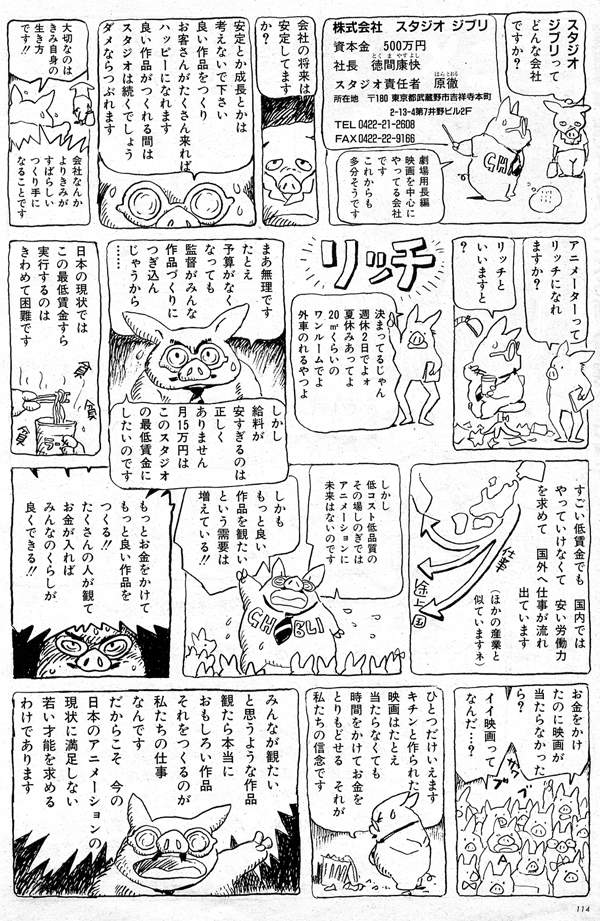 スタジオ
ジブリって
どんな会社
ですか?
株式会社 スタジオ ジブリ
資本金 500万円
とくまやすよし
社長 徳間康快
はらとおる
スタジオ責任者 原徹
所在地 〒180 東京都武蔵野市吉祥寺本町
2-13-4第7井野ビル2F
TEL 0422-21-2608
FAX 0422-22-9166
GH
劇場用長編
映画を中心に
やってる会社
です
これからも
多分そうです
会社の将来は
安定してます
か?
安定とか成長とかは
考えないで下さい
良い作品をつくり
お客さんがたくさん来れば
ハッピーになれます
良い作品がつくれる間は
スタジオは続くでしょう
ダメならつぶれます
大切なのは
きみ自身の
生き方
です!!
会社なんか
よりきみが
すばらしい
つくり手に
なることです
アニメーターって
リッチになれ
ますか?
リッチと
いいますと
?
リッチ
決まってるじゃん
週休2日でよォ
夏休みあってよ
20㎡くらいの
ワンルームでよ
外車のれるやつよ
まあ無理です
たとえ
予算がなく
なっても
監督がみんな
作品づくりに
つぎ込ん
じゃうから
……
しかし
給料が
安すぎるのは
正しく
ありません
月15万円は
このスタジオ
の最低賃金に
したいのです
日本の現状では
この最低賃金すら
実行するのは
きわめて困難です
貧
貧
貧
ラー
すごい低賃金でも 国内では
やっていけなくて 安い労働力
を求めて 国外へ仕事が流れ
出ています
(ほかの産業と
似ていますネ)
仕事
途上国
しかし
低コスト低品質の
その場しのぎでは
アニメーションに
未来はないのです
しかも
もっと良い
作品を観たい
という需要は
増えている!!
GH BLI
もっとお金をかけて
もっと良い作品を
つくる!!
たくさんの人が観て
お金が入れば
みんなのくらしが
良くできる!!
お金をかけ
たのに映画が
当たらなかった
ら?
イイ映画って
なんだ…?
ブ
ひとつだけいえます
キチンと作られた
映画はたとえ
当たらなくても
時間をかけてお金を
とりもどせる それが
私たちの信念です
みんなが観たい
と思うような作品
観たら本当に
おもしろい作品
それをつくるのが
私たちの仕事
なんです
だからこそ 今の
日本のアニメーションの
現状に満足しない
若い才能を求める
わけであります
114